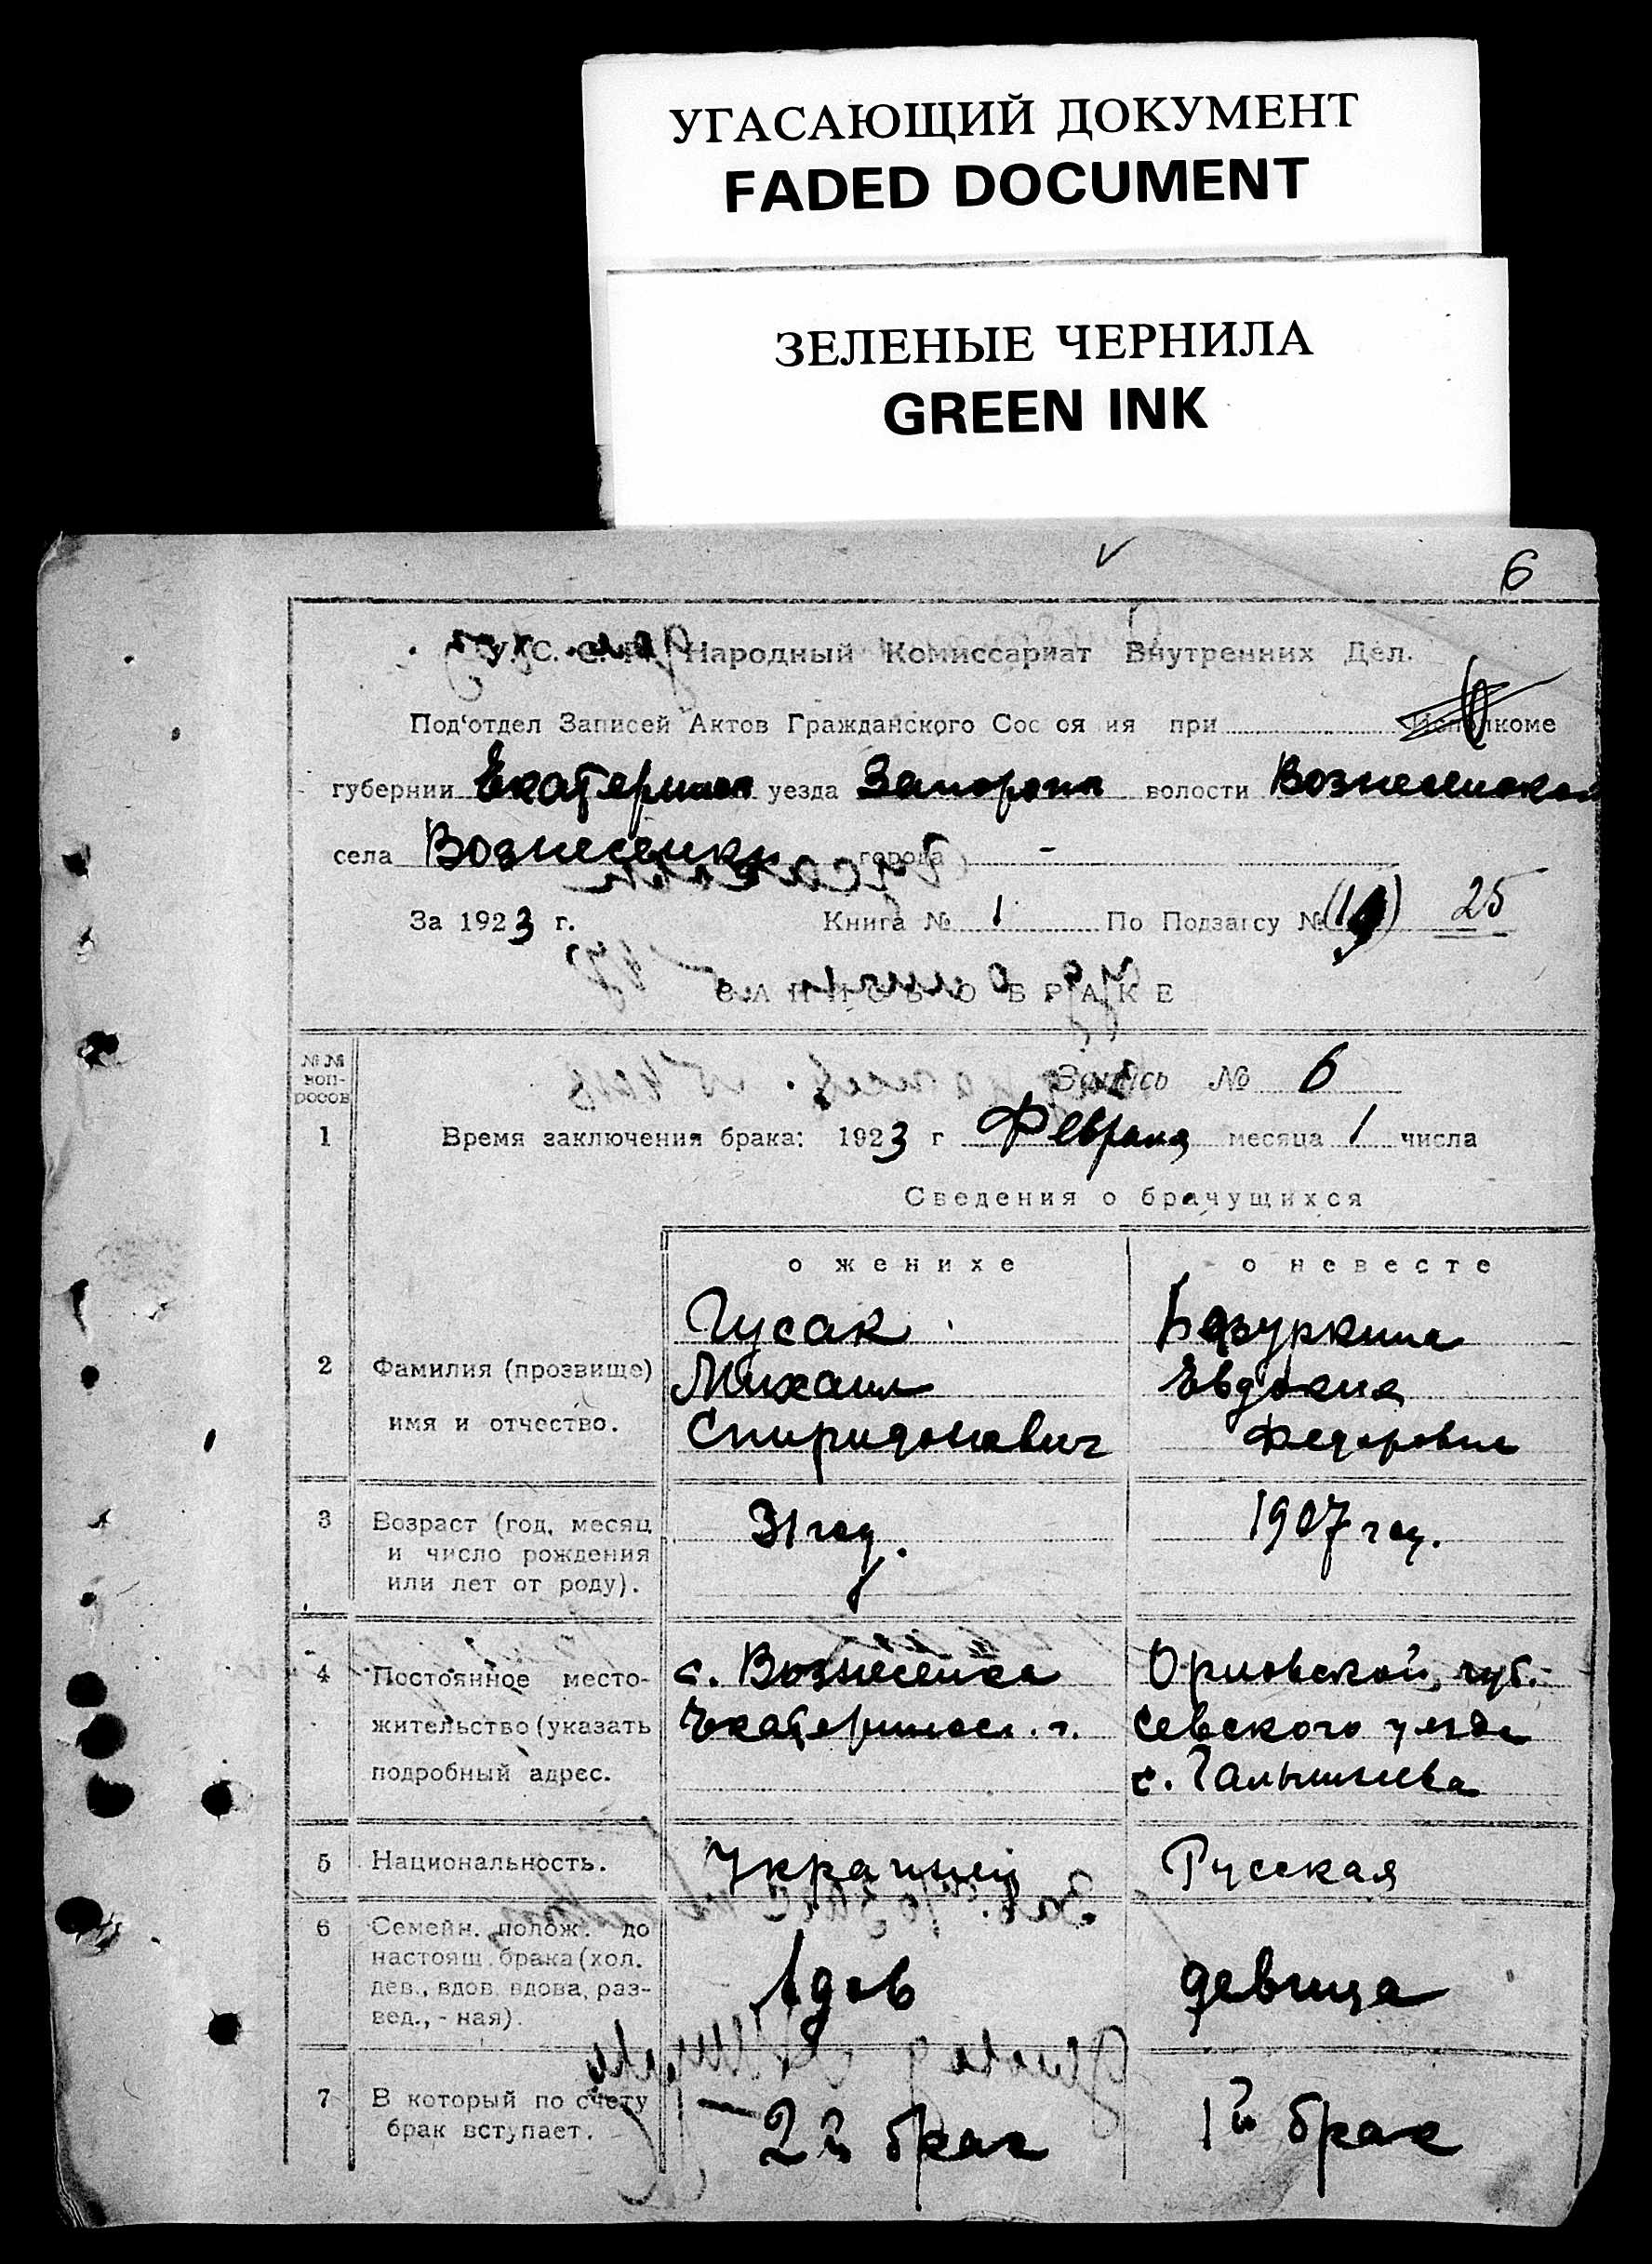 УГАСАЮЩИЙ ДОКУМЕНТ
FADED DOCUMENT
ЗЕЛЕНЫЕ ЧЕРНИЛА
GREEN INK
6
У. С. С. Р. Народный Комиссариат Внутренних Дел.
Под'отдел Записей Актов Гражданского Сос оя ия при Исполкоме
губернии Екатеринос уезда Запорожск волости Вознесенской
села Вознесенки города -
За 1923 г. Книга № 1 По Подзагсу № 25
ЗАПИСЬ О БРАКЕ
№№ вопросов
Запись № 6
1 Время заключения брака: 1923 г Февраля месяца 1 числа
Сведения о брачущихся
о женихе о невесте
Гусак Базуркина
2 Фамилия (прозвище) Михаил Евдокия
имя и отчество. Спиридонович Федоровна
3 Возраст (год, месяц 31 год. 1907 год.
и число рождения
или лет от роду).
4 Постоянное место- с. Вознесенка Орловской, губ.
жительство (указать Екатеринос. г. Севского уезда
подробный адрес. с.
5 Национальность. Украинец Русская
6 Семейн. полож. до
настоящ. брака (хол.
дев., вдов. вдова, раз- вдов девица
вед., - ная).
7 В который по счету 2й брак 1й брак
брак вступает.